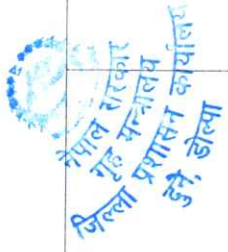 नेपाल सरकार
गृह मन्त्रालय
जिल्ला प्रशासन कार्यालय
दुनै, डोल्पा